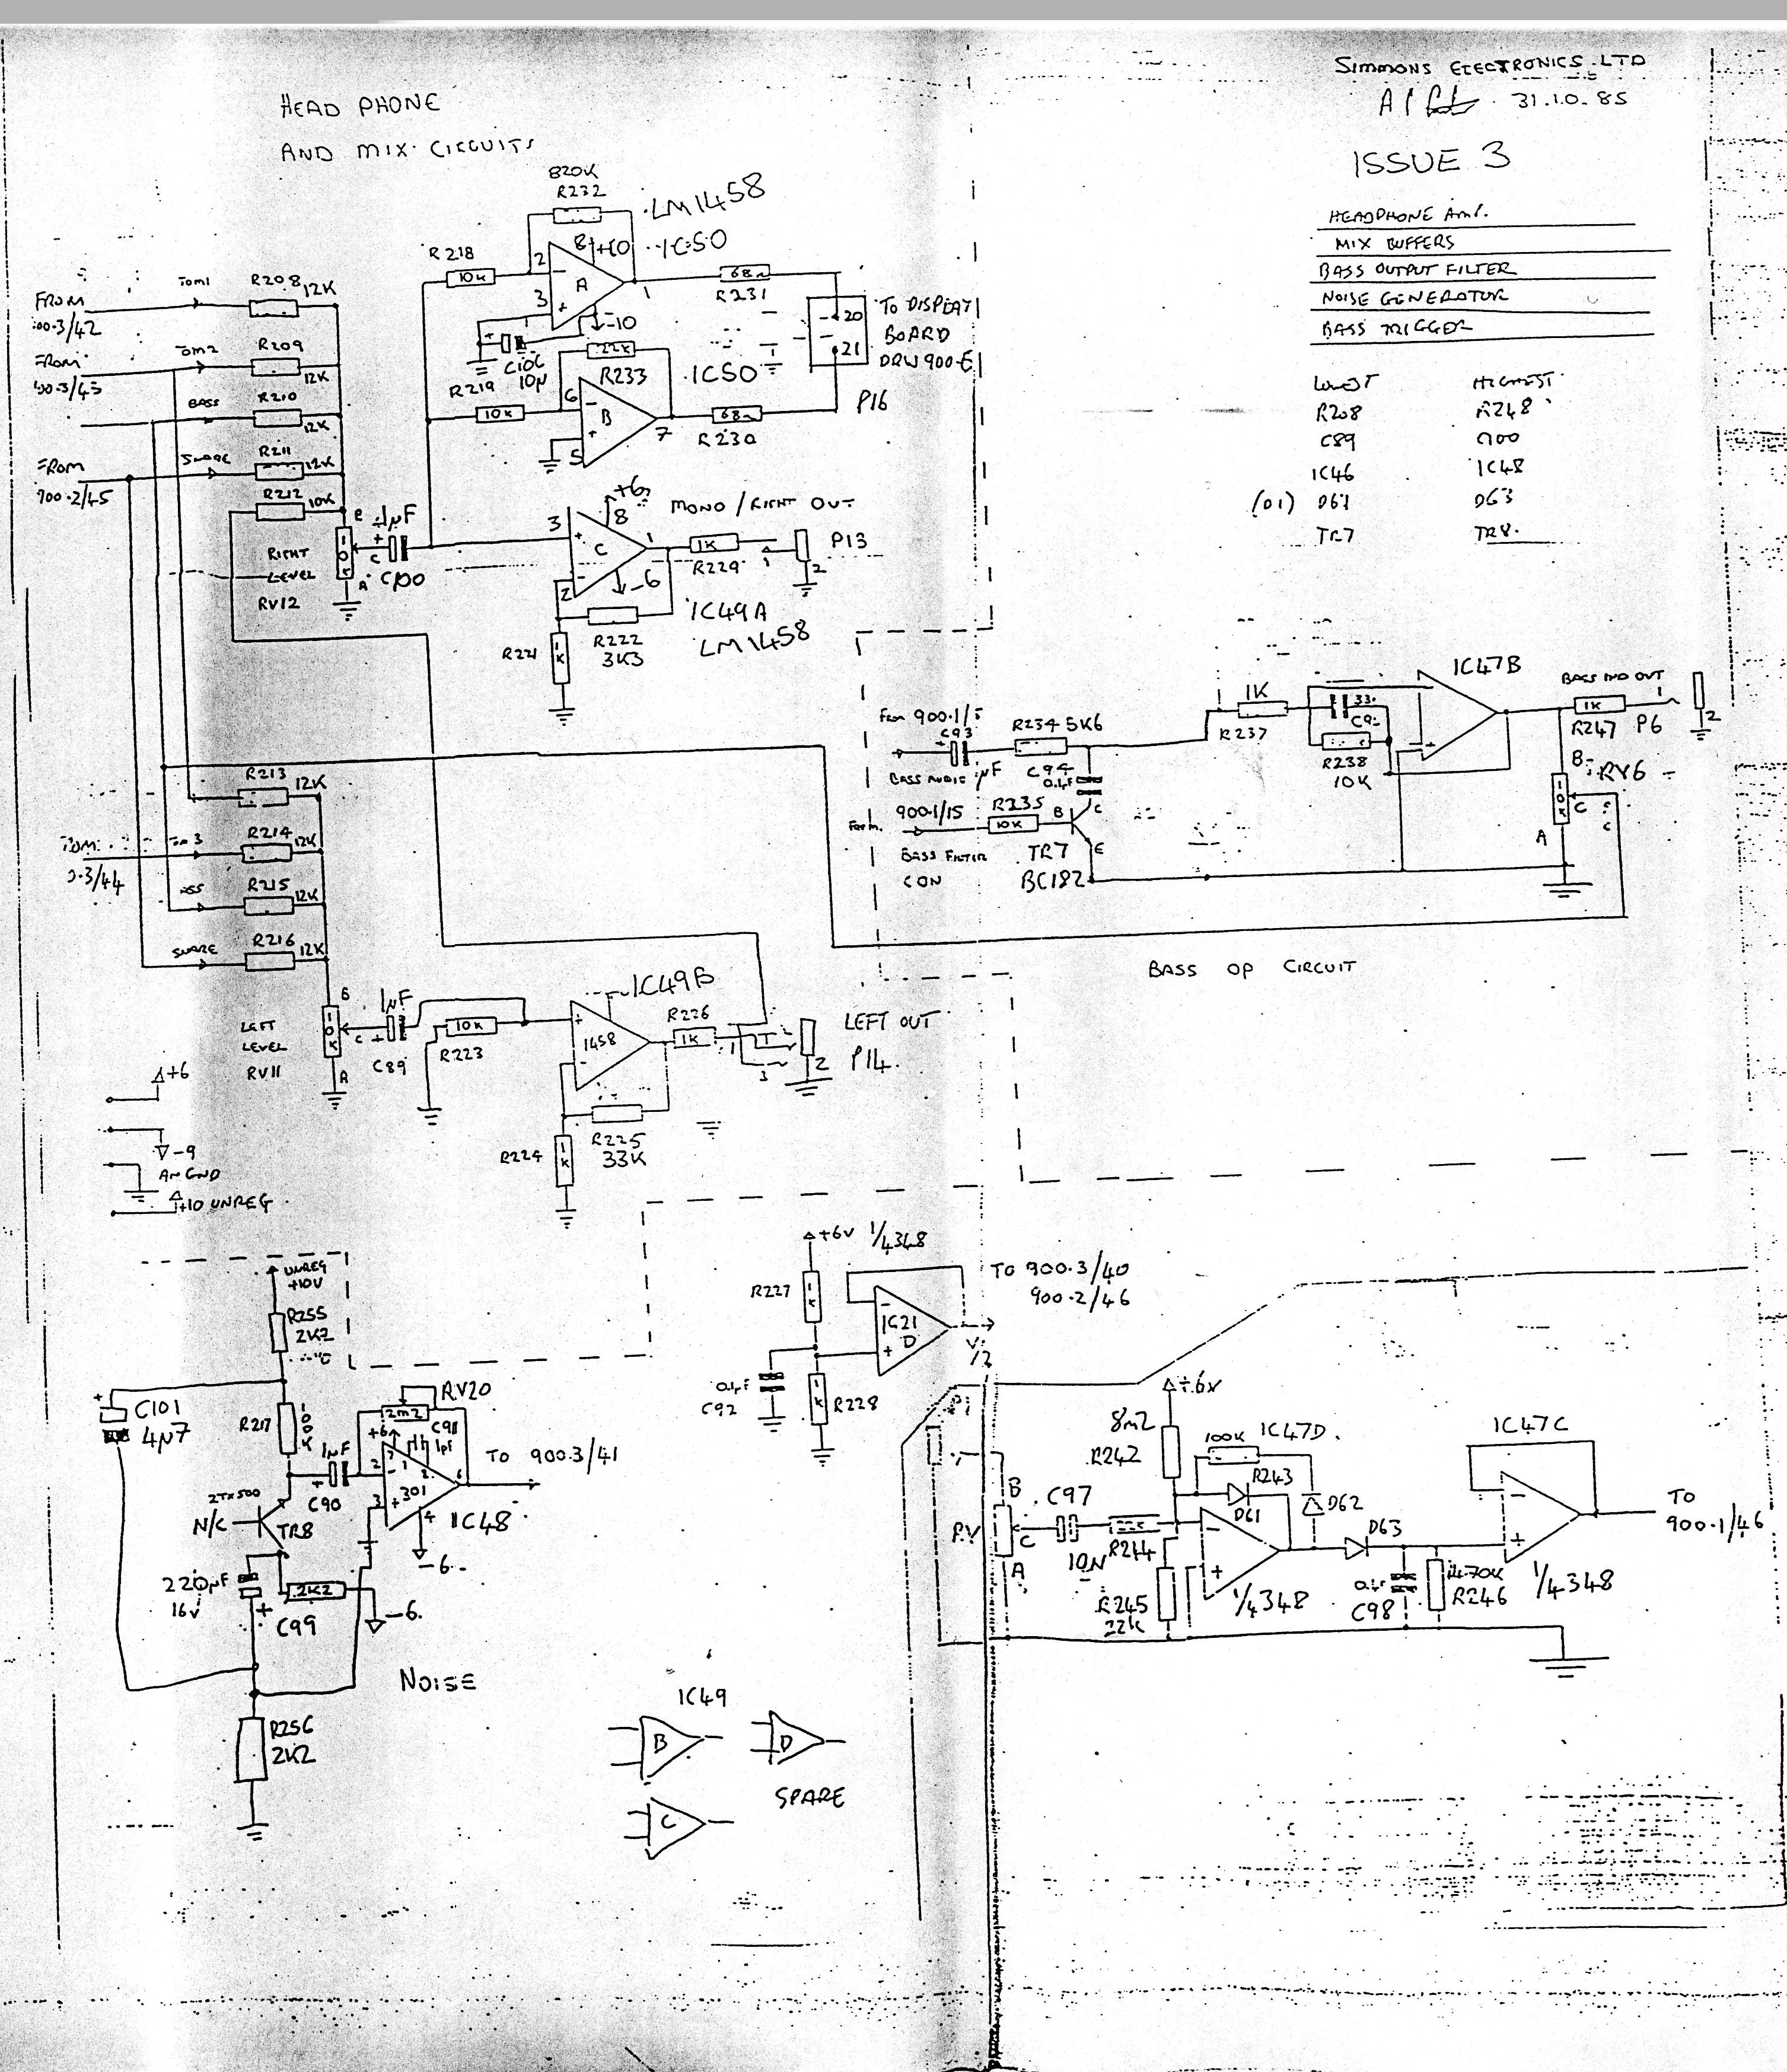 SIMMONS ELECTRONICS LTD
31.10.85
ISSUE 3
HEADPHONE AMP.
MIX BUFFERS
BASS OUTPUT FILTER
NOISE GENERATOR
BASS TRIGGER
LOWEST HIGHEST
R208 R248
C89
IC46 IC48
D63
TR7 TR8.
HEAD PHONE
AND MIX CIRCUITS
820K
R232
LM1458
IC50
8 +10
R218
10K
2
3
A
1
-10
68Ω
R231
C106
10µ
22K
R233
IC50
R219
10K
6
5
B
7
68Ω
R230
20
21
TO DISPLAY
BOARD
DRW 900-E
P16
FROM
TOM1
R208 12K
TOM2
R209
12K
BASS
R210
12K
FROM
900.2/45
SNARE
R211
12K
R212
10K
RIGHT
LEVEL
RV12
B
C
A
10K
1µF
+6
8
3
2
C
1
-6
MONO / RIGHT OUT
1K
R229
1
2
P13
IC49A
LM1458
R221
1K
R222
3K3
R213
12K
TOM 3
R214
12K
R215
12K
SNARE
R216
12K
LEFT
LEVEL
RV11
C
A
10K
1µF
C89
10K
R223
IC49B
1458
R226
1K
1
2
3
LEFT OUT
P14.
R224
1K
R225
33K
+6
-9
AN GND
+10 UNREG.
From 900.1/
C93
1µF
BASS AUDIO
R234 5K6
C94
0.1µF
900.1/15
R235
10K
B
C
E
BASS FILTER
CON
TR7
BC182
1K
R237
33
R238
10K
IC47B
BASS IND OUT
1K
R247
P6
1
2
B
RV6
10K
C
A
BASS OP CIRCUIT
UNREG
+10V
R255
2K2
C101
4µ7
R217
100K
1µF
C90
RV20
2M2
C91
1pF
+6
301
2
3
4
6
7
IC48
-6
TO 900.3/41
ZTX500
N/C
TR8
220µF
16V
C99
2K2
-6
NOISE
R256
2K2
+6V 1/4348
R227
1K
IC21
D
TO 900.3/40
900.2/46
0.1µF
C92
1K
R228
8M2
R242
100K
IC47D.
R243
D61
D62
D63
B
C
A
C97
10N
R244
R245
22K
1/4348
0.1µF
C98
470K
R246
IC47C
1/4348
TO
900.1/46
IC49
B
D
C
SPARE